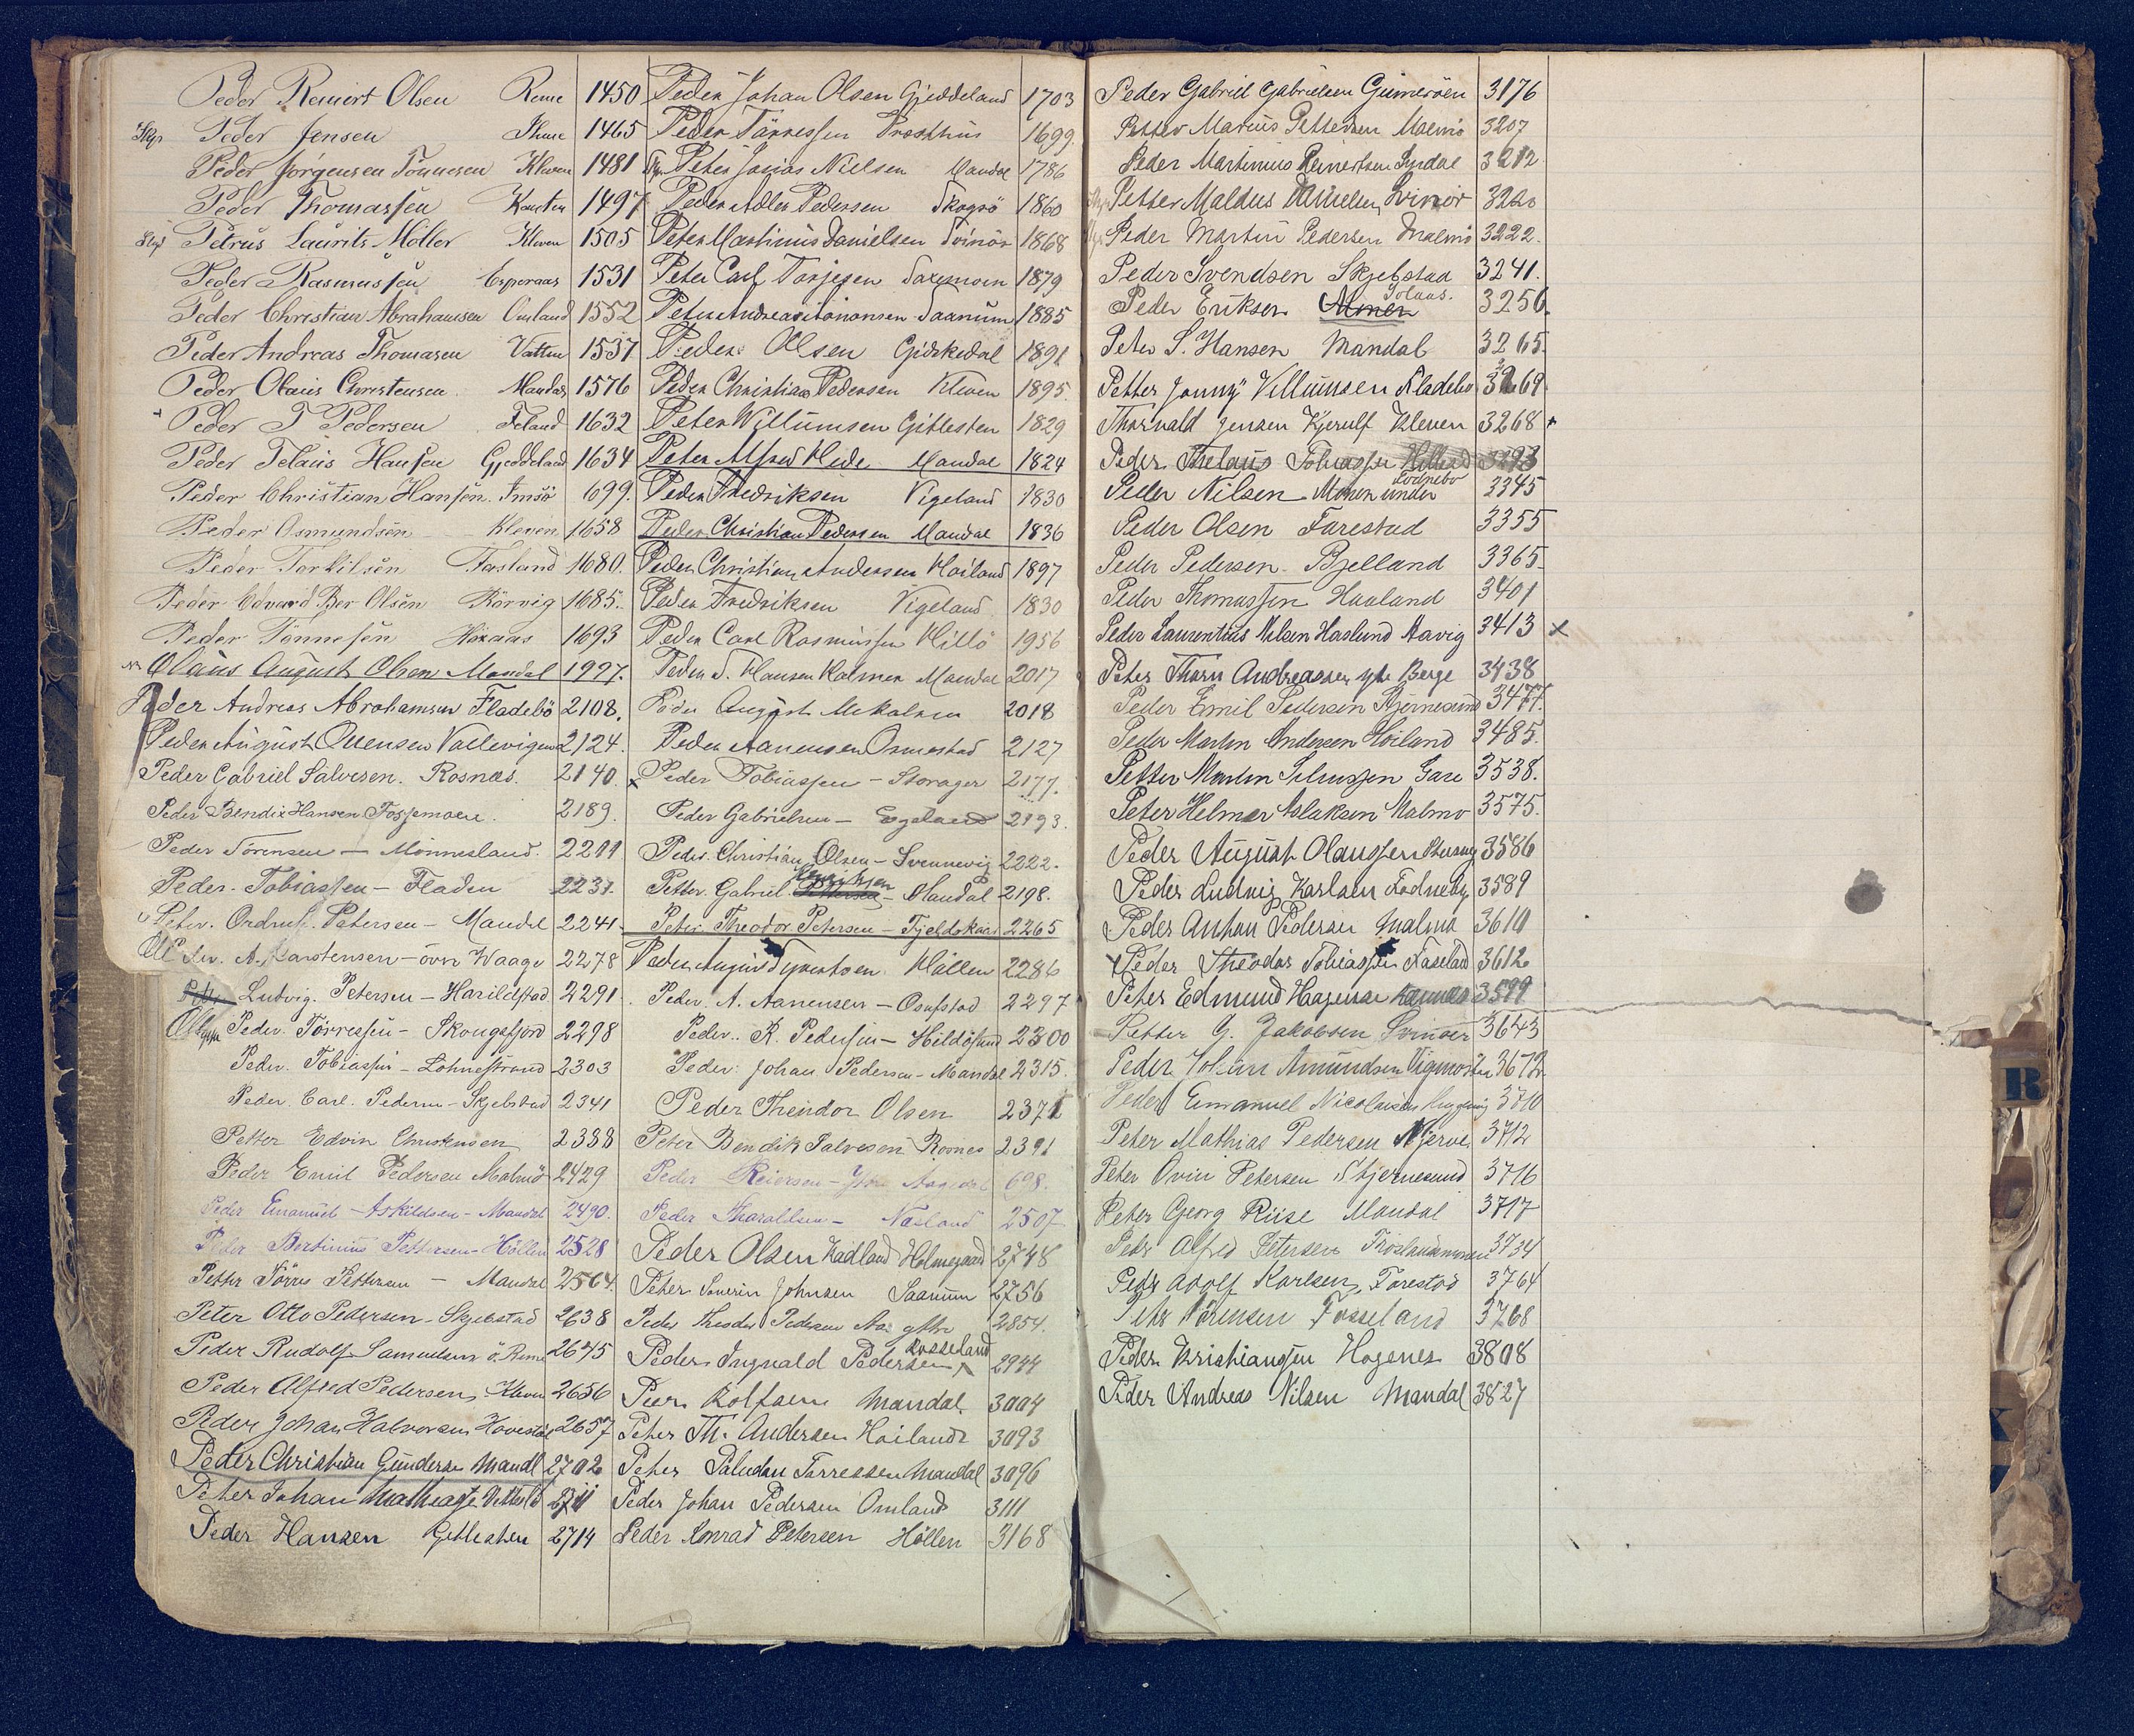 Peder Reinert Olsen Reme 1450
Skp Peder Jensen 1465
Peder Jörgensen Tönnesen Kleven 1481
Peder Thomassen 1497
Skp Petrus Laurits Möller Kleven 1505
Peder Rasmussen 1531
Peder Christian Abrahamsen Omland 1552
Peder Andreas Thomasen 1537
Peder Olaus Christensen Mandal 1576
Peder T Pedersen 1632
Peder Telaus Hansen Gjeddeland 1634
Peder Christian Hansen Imsö 1699
Peder Osmundsen Kleven 1658
Peder Torkilsen 1680
Peder Edvard Ber Olsen Rörvig 1685
Peder Tönnesen 1693
Olaus August Olsen Mandal 1997
Peder Andreas Abrahamsen Fladebö 2108
Peder August Ouensen Vallevigen 2124
Peder Gabriel Salvesen Rosnæs 2140
Peder Bendix Hansen 2189
Peder Sörensen – Mönnesland 2201
Peder Tobiassen – Fladen 2237
Peter Petersen – Mandal 2241
A. Karstensen – övre Waage 2278
Ludvig Petersen – Harildstad 2291
Peder Törressen – Skougsfjord 2298
Peder Tobiassen – Lohnestrand 2303
Peder Carl Pedersen – Skjebstad 2341
Petter Edvin Christensen 2388
Peder Emil Pedersen Malmö 2429
Peder Emanuel Askildsen – Mandal 2490
Peder Bertinius Pettersen – Höllen 2528
Petter Törres Pettersen – Mandal 2564
Peter Otto Pedersen – Skjebstad 2638
Peder Rudolf Samuelsen ö. Reme 2645
Peder Alfred Pedersen, Kleven 2656
Peder Johan Halvorsen 2657
Peder Christian Gundersen Mandl 2702
Peter Johan Mathiass 2711
Peder Hansen Gitlesten 2714
Peder Johan Olsen Gjeddeland 1703
Peder Törressen Prosthus 1699
Peter Josias Nielsen Mandal 1786
Peder Adler Pedersen Skogsö 1860
Peter Martinius Danielsen Svinör 1868
Peter Carl Torjesen 1879
Peter Andreas Saanum 1885
Peder Olsen Gidskedal 1891
Peder Christian Pedersen Kleven 1895
Peter Willumsen Gitlesten 1829
Peter Alfred Hede Mandal 1824
Peder Fredriksen Vigeland 1830
Peder Christian Pedersen Mandal 1836
Peder Christian Andersen Hoiland 1897
Peder Fredriksen Vigeland 1830
Peder Carl Rasmussen Hillö 1956
Peder S. Hansen Holmen Mandal 2017
Peder August Mikalsen 2018
Peder Aanensen Osmestad 2127
Peder Tobiassen – Storager 2177
Peder Gabrielsen – Egeland 2193
Peder Christian Olsen – Svennevig 2222
Petter Gabriel Henriksen – Mandal 2198
Peter Theodor Petersen – Fjeldskaar 2265
Peder August Hållen 2286
Peder A. Aanensen – Osestad 2297
Peder R. Pedersen – Hildösund 2300
Peder Johan Pedersen – Mandal 2315
Peder Theodor Olsen 2371
Peter Bendik Salvesen Rosnes 2391
Peder Reiersen – 698
Peder Haraldsen – Næsland 2507
Peder Olsen Hadland Holmegaard 2748
Peter Severin Johnsen Saanum 2756
Peder Theodor Pedersen Aa ytre 2854
Peder Ingvald Pedersen Rosseland 2944
Peer Rolfsen Mandal 3004
Peter Th. Andersen Hoiland 3093
Peter Paludan Tarressen Mandal 3096
Peder Johan Pedersen Omland 3111
Peder Konrad Petersen Höllen 3168
Peder Gabriel Gabrielsen Gismeröen 3176
Petter Marius Pettersen Malmö 3207
Peder Martinius Reinertsen Syrdal 3212
Petter Maldus Svinör 3220
Peder Martin Pedersen Malmö 3222
Peder Svendsen Skjebstad 3241
Peder Eriksen Monen Solaas 3256
Peter S. Hansen Mandal 3265
Petter Jonny Villumsen Fladebo 3269
Thorvald Jensen Kjerulf Kleven 3268
Peder Thelaus Tobiassen 3293
Peder Nilsen Monen under Lodnebo 3345
Peder Olsen Farestad 3355
Peder Pedersen Bjelland 3365
Peder Thomassen Haaland 3401
Peder Laurentius Nelsen Haslund Aavig 3413 x
Peter Thorn Andreassen ytr Berge 3438
Peder Emil Pedersen Stjernesund 3477
Peder Martin Andersen Höiland 3485
Petter Martin Gare 3538
Peter Helmer Aslaksen Malmö 3575
Peder August Olaussen 3586
Peder Ludvig Karlsen Lodneby 3589
Peder Anton Pedersen Malmö 3610
Peder Theodor Tobiassen Faseland 3612
Peter Edmund Haagensen 3599
Petter G. Jakobsen Svinöer 3643
Peder Johan Amundsen Vigmostad 3672
Peder Emanuel Nicolaisen 3710
Peter Mathias Pedersen Njerve 3712
Peter Ovin Petersen Stjernesund 3716
Peter Georg Riise Mandal 3717
Peder Alfred Petersen Fröslandsmonen 3734
Peder Adolf Karlsen, Farestad 3764
Peder Sörensen Fosseland 3768
Peder Kristiansen Hogenes 3808
Peder Andreas Nilsen Mandal 3827